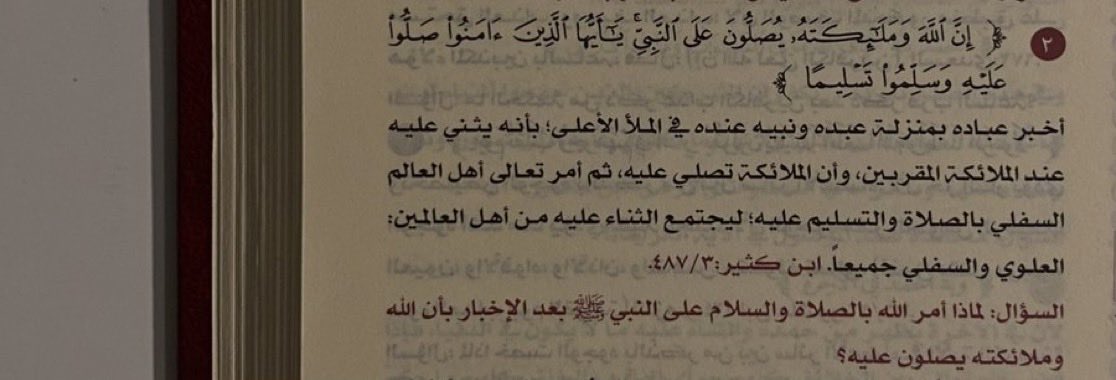 ٢ ﴿ إِنَّ ٱللَّهَ وَمَلَـٰٓئِكَتَهُۥ يُصَلُّونَ عَلَى ٱلنَّبِىِّ ۚ يَـٰٓأَيُّهَا ٱلَّذِينَ ءَامَنُوا۟ صَلُّوا۟
عَلَيْهِ وَسَلِّمُوا۟ تَسْلِيمًا ﴾
أخبر عباده بمنزلة عبده ونبيه عنده في الملأ الأعلى؛ بأنه يثني عليه
عند الملائكة المقربين، وأن الملائكة تصلي عليه، ثم أمر تعالى أهل العالم
السفلي بالصلاة والتسليم عليه؛ ليجتمع الثناء عليه من أهل العالمين:
العلوي والسفلي جميعاً. ابن كثير:٤٨٧/٣.
السؤال: لماذا أمر الله بالصلاة والسلام على النبي ﷺ بعد الإخبار بأن الله
وملائكته يصلون عليه؟